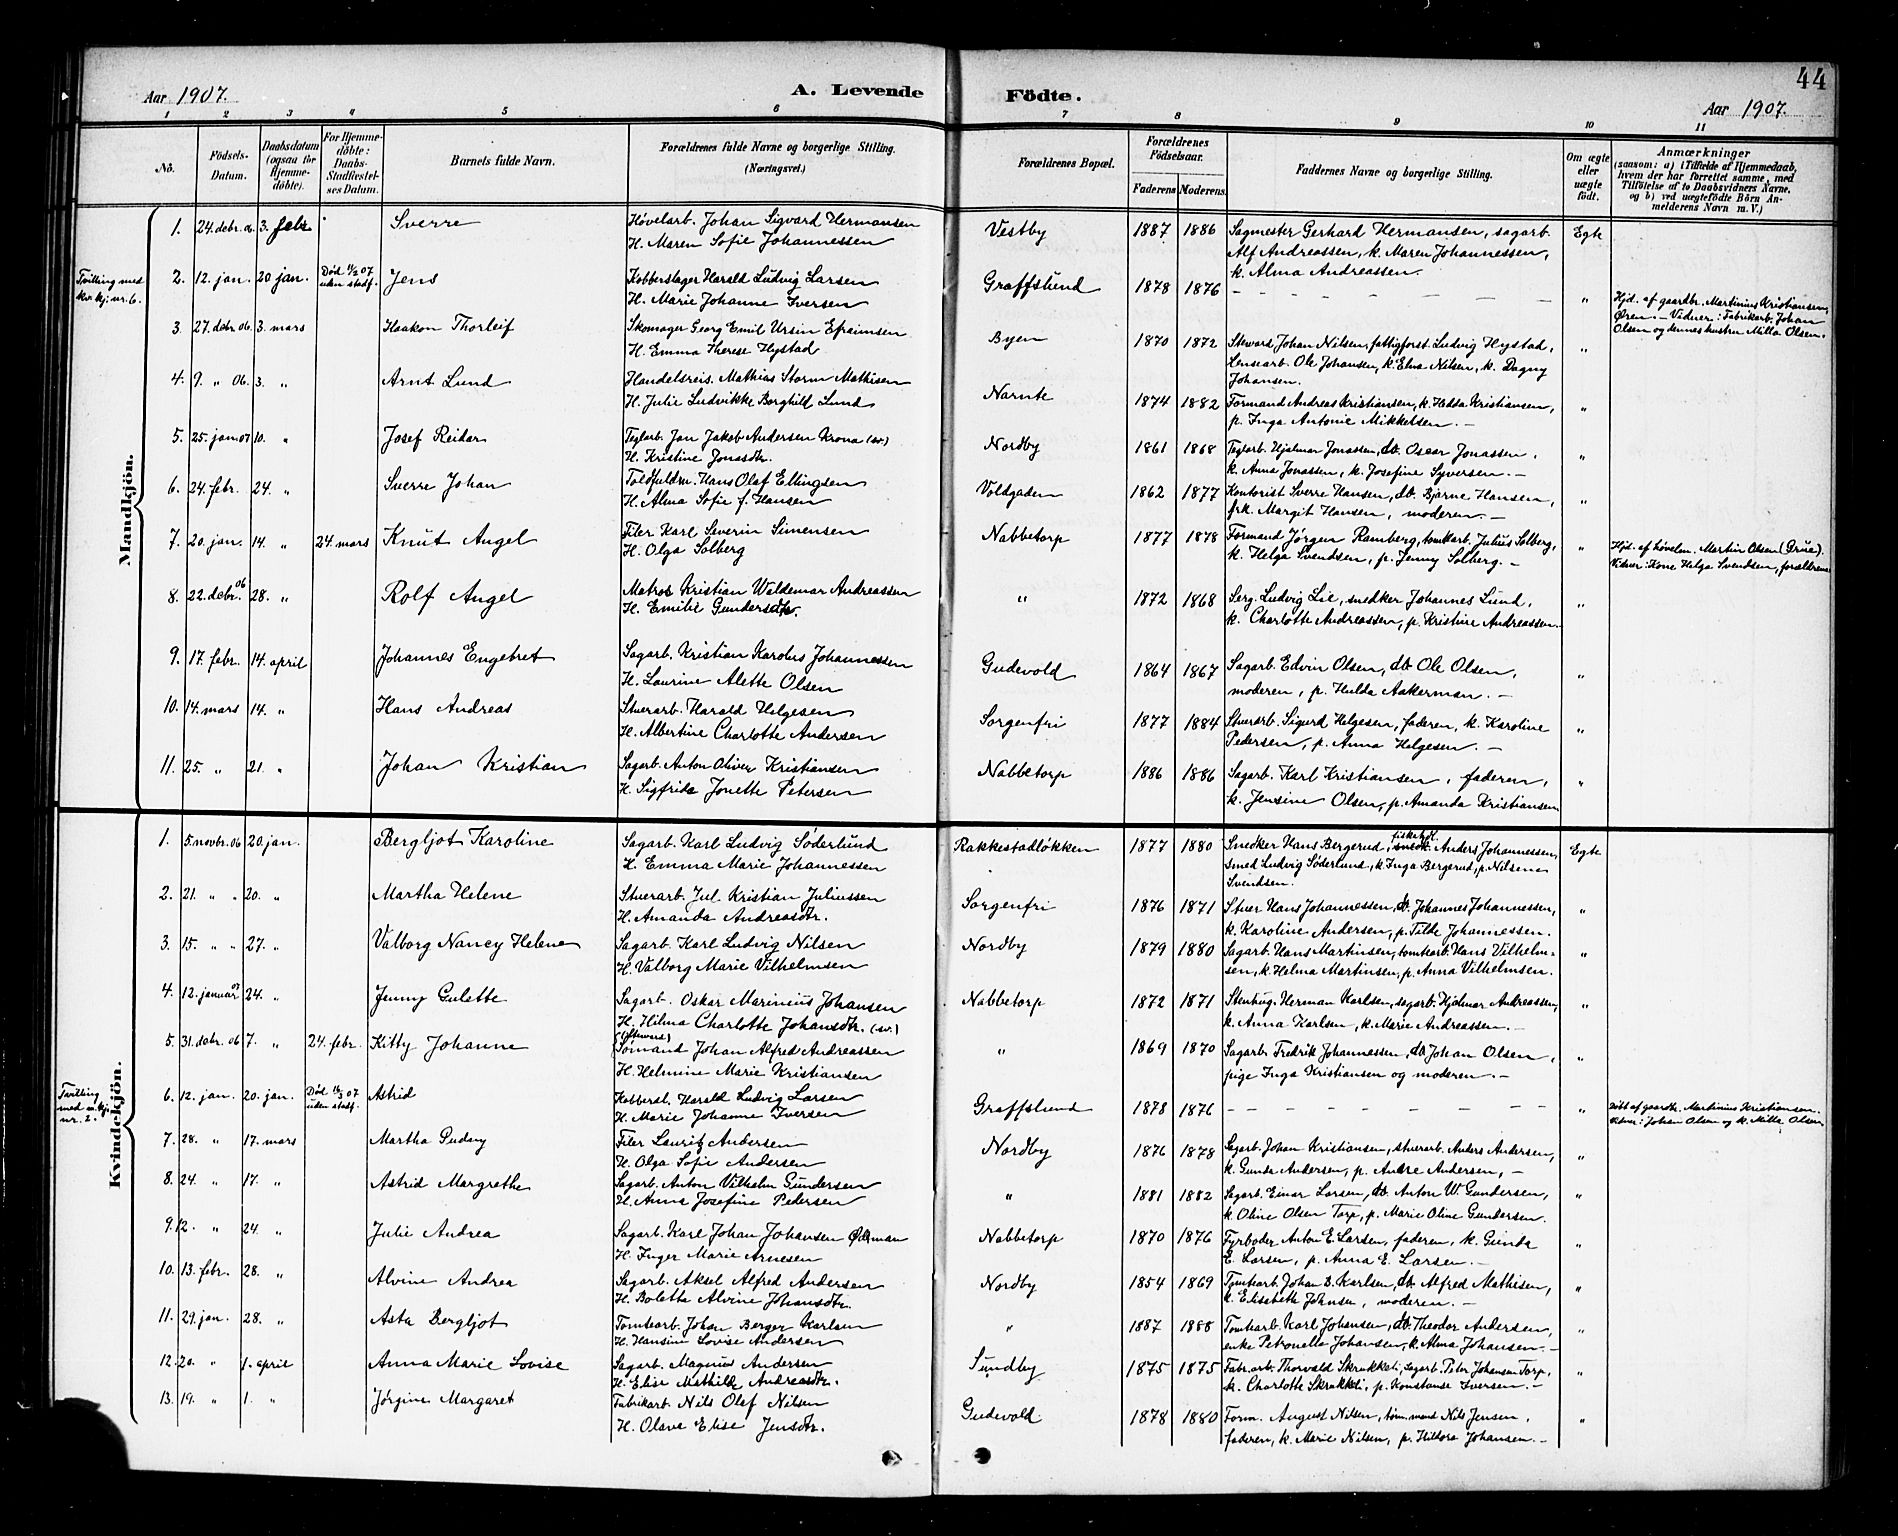 44
Aar 1907. A. Levende Födte. Aar 1907.
1 2 3 4 5 6 7 8 9 10 11
No.
Födsels-Datum.
Daabsdatum (ogsaa for Hjemmedöbte).
For Hjemmedöbte: Daabs-Stadfæstelses Datum.
Barnets fulde Navn.
Forældrenes fulde Navne og borgerlige Stilling.
(Næringsvei.)
Forældrenes Bopæl.
Forældrenes Födselsaar.
Faderens Moderens.
Faddernes Navne og borgerlige Stilling.
Om ægte eller uægte födt.
Anmærkninger
(saasom: a) i Tilfælde af Hjemmedaab, hvem der har forrettet samme, med Tilföielse af to Daabsvidners Navne, og b) ved uægtefödte Börn Anmelderens Navn m. V.)
Mandkjön.
1. 24. debr. 06. 3. febr. Sverre Høvelarb. Johan Sigvard Hermansen Vestby 1887 1886 Sagmester Gerhard Hermansen, sagarb. Egte
H. Maren Sofie Johannessen Alf Andreassen, k. Maren Johannessen,
k. Alma Andreassen.
Tvilling med kv.kj. nr. 6. 2. 12. jan. 20. jan. Død 11/2 07 uden stadf. Jens Kobberslager Harald Ludvig Larsen Graffslund 1878 1876 - - - - - - "
H. Marie Johanne Iversen Hjd. af gaardbr. Martinius Kristiansen,
Øren. - Vidner: Fabrikarb. Johan
Olsen og dennes hustru Milla Olsen.
3. 27. debr. 06. 3. mars Haakon Thorleif Skomager Georg Emil Ursin Efraimsen Byen 1870 1872 Steward Johan Nilsen, fattigforst. Ludvig Hystad, "
H. Emma Therese Hystad Lensearb. Ole Johansen, k. Elna Nilsen, k. Dagny
Johansen.
4. 9. " 06. 3. " Arnt Lund Handelsreis. Mathias Storm Mathisen Narnte 1874 1882 Formand Andreas Kristiansen, k. Hedda Kristiansen, "
H. Julie Ludvikke Borghild Lund p. Inga Antonie Mikkelsen. -
5. 25. jan 07 10. " Josef Reidar Teglarb. Jan Jakob Andersen Krona (sv.) Nordby 1861 1868 Teglarb. Hjalmar Jonassen, do. Oscar Jonassen, "
H. Kristine Jonasdtr. k. Anna Jonassen, k. Josefine Syversen. -
6. 24. febr. 24. " Sverre Johan Toldfuldm. Hans Olaf Ellingsen Voldgaden 1862 1877 Kontorist Sverre Hansen, do. Bjarne Hansen, "
H. Alma Sofie f. Hansen frk. Margit Hansen, moderen. -
7. 20. jan. 14. " 24. mars Knut Angel Filer Karl Severin Simensen Nabbetorp 1877 1878 Formand Jørgen Ramberg, tomtearb. Julius Solberg, "
H. Olga Solberg k. Helga Svendsen, p. Jenny Solberg. - Hjd. af høvelm. Martin Olsen (Grue).
Vidner: Kone Helga Svendsen, forældrene
8. 22. debr. 06 28. " Rolf Angel Matros Kristian Waldemar Andreassen " 1872 1868 Serg. Ludvig Lie, snedker Johannes Lund, "
H. Emilie Gundersdtr. k. Charlotte Andreassen, p. Kristine Andreassen.
9. 17. febr. 14. april Johannes Engebret Sagarb. Kristian Karolus Johannessen Gudevold 1864 1867 Sagarb. Edvin Olsen, do. Ole Olsen, "
H. Laurine Alette Olsen moderen, p. Hulda Aakerman. -
10. 14. mars 14. " Hans Andreas Stuerarb. Harald Helgesen Sorgenfri 1877 1884 Stuerarb. Sigurd Helgesen, faderen, k. Karoline "
H. Albertine Charlotte Andersen Pedersen, p. Anna Helgesen. -
11. 25. " 21. " Johan Kristian Sagarb. Anton Oliver Kristiansen Nabbetorp 1886 1886 Sagarb. Karl Kristiansen, faderen, "
H. Sigfrida Jonette Petersen k. Jensine Olsen, p. Amanda Kristiansen
Kvindekjön.
1. 5. novbr. 06 20. jan. Bergljot Karoline Sagarb. Karl Ludvig Søderlund Rakkestadløkken 1877 1880 Snedker Hans Bergerud, Anders Johannessen, Egte
H. Emma Marie Johannessen smed Ludvig Söderlund, k. Inga Bergerud, p. Nilsena
Svendsen.
2. 21. " " 20. " Martha Helene Stuerarb. Jul. Kristian Juliussen Sorgenfri 1876 1871 Stuer Hans Johannessen, do. Johannes Johannessen, "
H. Amanda Andreasdtr. k. Karoline Andersen, p. Tilde Johannessen.
3. 15. " " 27. " Valborg Nancy Helene Sagarb. Karl Ludvig Nilsen Nordby 1879 1880 Sagarb. Hans Martinsen, tomtearb. Hans Vilhelm- "
H. Valborg Marie Vilhelmsen sen, k. Helma Martinsen, p. Anna Vilhelmsen.
4. 12. januar 07 24. " Jenny Gulette Sagarb. Oskar Marinius Johansen Nabbetorp 1872 1871 Stenhug. Herman Karlsen, sagarb. Hjalmar Andreassen, "
H. Hilma Charlotte Johansdtr. (sv.) k. Anna Karlsen, k. Marie Andreassen. -
5. 31. debr. 06 7. " 24. febr. Kitty Johanne Sømand Johan Alfred Andreassen " 1869 1870 Sagarb. Fredrik Johannessen, do. Johan Olsen, "
H. Helmine Marie Kristiansen pige Inga Kristiansen og moderen. -
Tvilling med m.kj. nr. 2. 6. 12. jan. 20. jan. Død uden stadf. Astrid Kobbersl. Harald Ludvig Larsen Graffslund 1878 1876 - - - - - - "
H. Marie Johanne Iversen Döbt af gaardbr. Martinius Kristiansen.
Vidner: Johan Olsen og k. Milla Olsen
7. 28. " 17. mars Martha Pudny Filer Lauritz Andersen Nordby 1876 1878 Sagarb. Johan Kristiansen, stuerarb. Anders Andersen, "
H. Olga Sofie Andersen k. Gunda Andersen, p. Andre Andersen, -
8. 24. " 17. " Astrid Margrethe Sagarb. Anton Vilhelm Gundersen " 1881 1882 Sagarb. Einar Larsen, do. Anton W. Gundersen, "
H. Anna Josefine Pedersen k. Oline Olsen Torp, p. Marie Oline Gundersen.
9. 12. " 24. " Julie Andrea Sagarb. Karl Johan Johansen Öhman Nabbetorp 1870 1876 Fyrböder Anton E. Larsen, faderen, k. Gunda "
H. Inger Marie Arnesen E. Larsen, p. Anna E. Larsen. -
10. 13. febr. 28. " Alvine Andrea Sagarb. Aksel Alfred Andersen Nordby 1854 1869 Tomtearb. Johan B. Karlsen, do. Alfred Mathisen, "
H. Bolette Alvine Johansdtr. k. Elisabeth Johnsen, moderen. -
11. 29. jan. 28. " Asta Bergljot Tomtearb. Johan Berger Karlsen " 1887 1888 Tomtearb. Karl Johansen, do. Theodor Andersen, "
H. Hansine Lovise Andersen enke Petronelle Johansen, k. Alma Johansen. -
12. 20. " 1. april Anna Marie Lovise Sagarb. Magnus Andersen Sundby 1875 1875 Fabr. arb. Thorvald Skrukkeli, sagarb. Peter Johansen Torp, "
H. Elise Mathilde Andreasdtr. k. Charlotte Skrukkeli, p. Konstanse Iversen. -
13. 19. " 1. " Jørgine Margaret Fabrikarb. Nils Olaf Nilsen Gudevold 1878 1880 Form. August Nilsen, tøm.mand Nils Jensen, "
H. Olava Elise Jensdtr. faderen, k. Marie Nilsen, p. Hildora Johansen. -